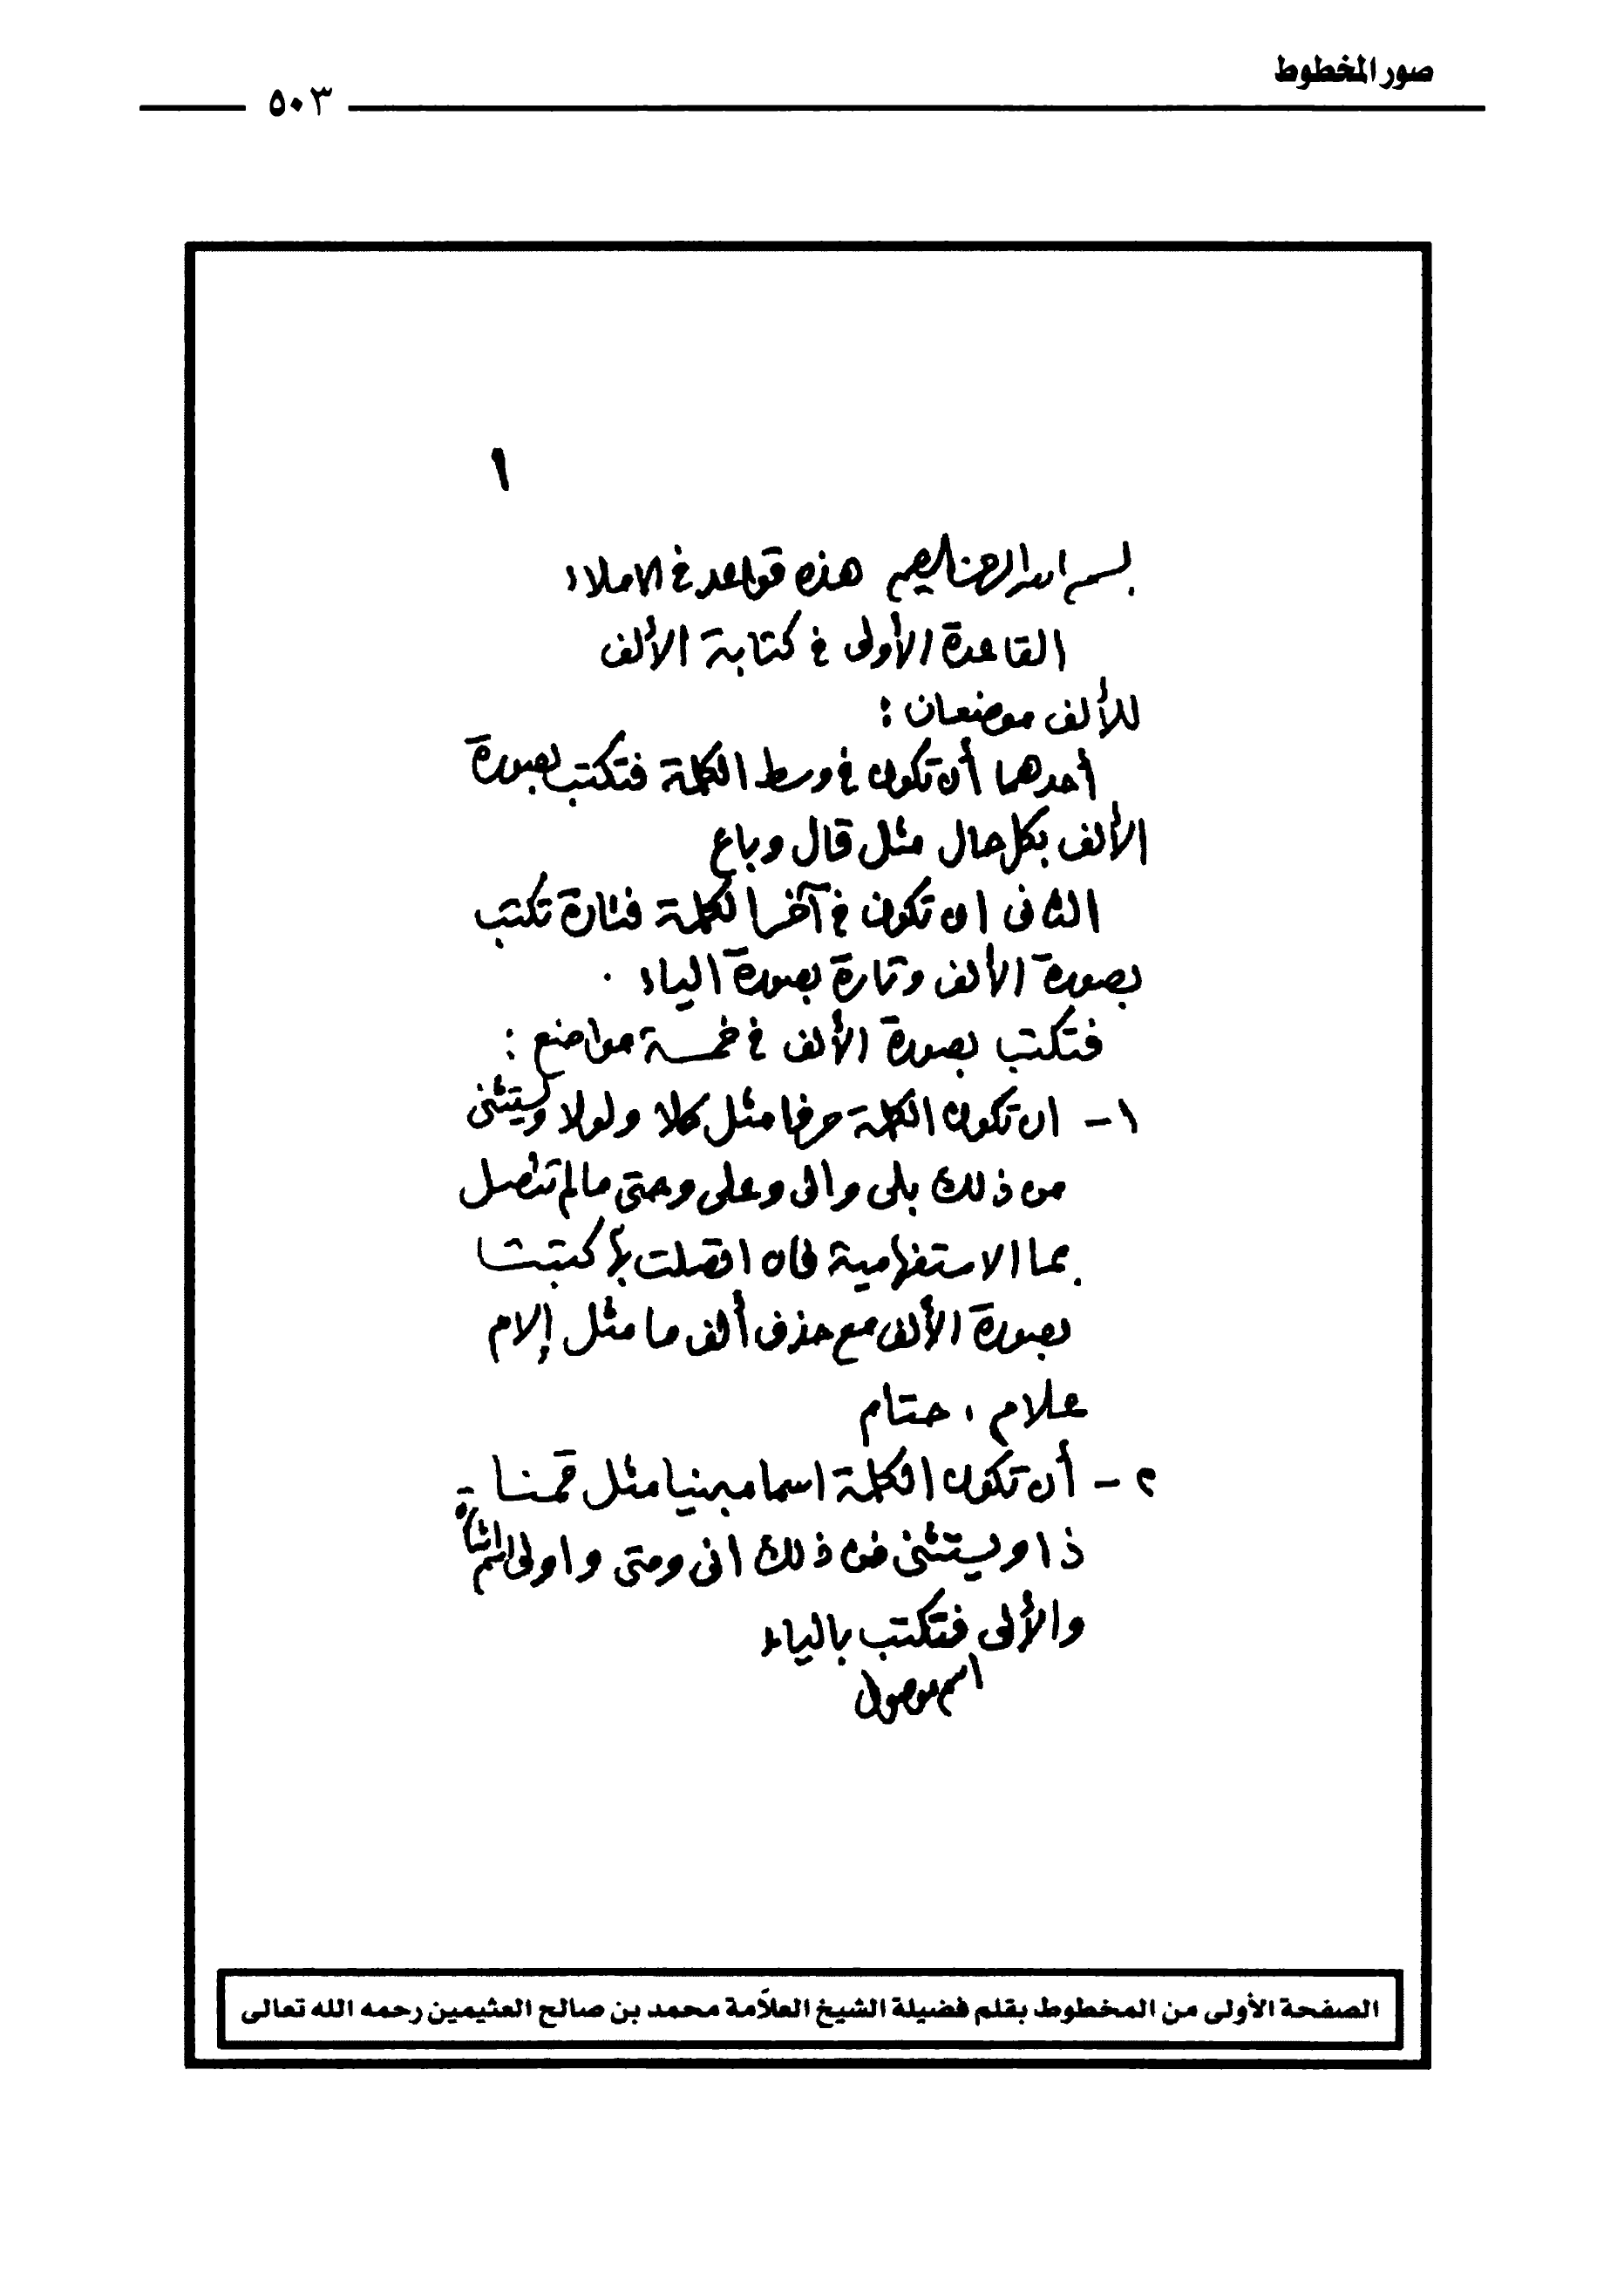 صور المخطوط
٥٠٣
١
بسم الله الرحمن الرحيم هذه قواعد في الاملاء
القاعدة الأولى في كتابة الألف
للألف موضعان :
أحدهما أن تكون في وسط الكلمة فتكتب بصورة
الألف بكل حال مثل قال وباع
الثانى ان تكون في آخر الكلمة فتارة تكتب
بصورة الألف وتارة بصورة الياء .
فتكتب بصورة الألف في خمسة مواضع :
١- ان تكون الكلمة حرفا مثل كلا ولولا ويستثنى
من ذلك بلى والى وعلى وحتى مالم تتصل
بما الاستفهامية فان اتصلت بها كتبت
بصورة الألف مع حذف ألف ما مثل إلام
علام ، حتام
٢- أن تكون الكلمة اسما مبنيا مثل قمنا -
ذا ويستثنى من ذلك انى ومتى واولى اسم اشارة
والألى فتكتب بالياء
اسم موصول
الصفحة الأولى من المخطوط بقلم فضيلة الشيخ العلاّمة محمد بن صالح العثيمين رحمه الله تعالى